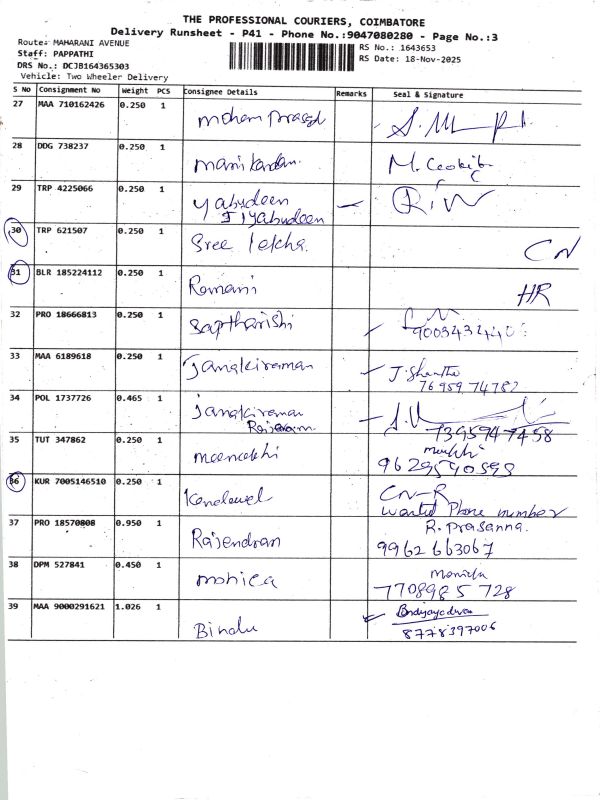 THE PROFESSIONAL COURIERS, COIMBATORE
Delivery Runsheet - P41 - Phone No.:9047080280 - Page No.:3
Route: MAHARANI AVENUE
Staff: PAPPATHI
DRS No.: DCJB164365303
Vehicle: Two Wheeler Delivery
RS No.: 1643653
RS Date: 18-Nov-2025
S No Consignment No Weight PCS Consignee Details Remarks Seal & Signature
27 MAA 710162426 0.250 1
28 DDG 738237 0.250 1 manikandan
29 TRP 4225066 0.250 1 yabudeen
Jiyabudeen
30 TRP 621507 0.250 1 Sree lekha. CN
31 BLR 185224112 0.250 1 Romani HR
32 PRO 18666813 0.250 1 saptharishi
33 MAA 6189618 0.250 1 Janakiraman J. Shantha
76959 74782
34 POL 1737726 0.465 1 Janakiraman
7395947458
35 TUT 347862 0.250 1 meenakshi
9629590593
36 KUR 7005146510 0.250 1 CN-R
wanted Phone number
37 PRO 18570808 0.950 1 Rajendran R. Prasanna.
9962663067
38 DPM 527841 0.450 1 monica
7708985 728
39 MAA 9000291621 1.026 1 Bindu
8778397006